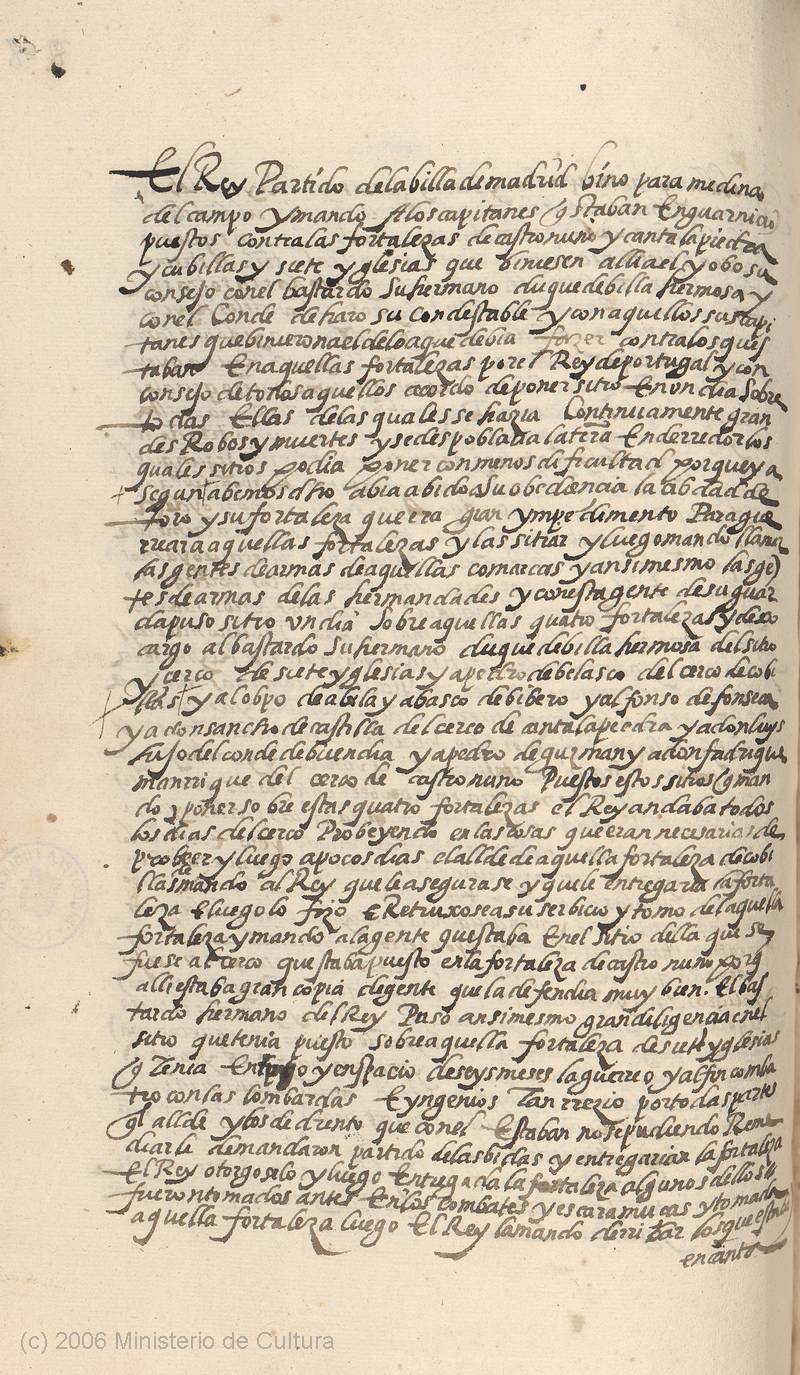 El Rey Partido de la billa de madrid bino para medina
del campo y mando A los capitanes q Estaban En guarnicio
puestos contra las fortalezas de castronuño y cantalapiedra
y cubillas y siete yglesias que biniesen alli a el y obo su
consejo con el bastardo su hermano duque de billa hermosa y
con el Conde de haro su condestable y con aquellos sus capi
tanes que binieron a el de lo que debia fazer contra los ques
taban En aquellas fortalezas por el Rey de portugal y con
consejo de todos aquellos acordo de poner sitio En un dia sobre
todas Ellas de las quales se hazia Continuamente gran
des Robos y muertes y se despoblaba la tierra En derredor los
quales sitios podia poner con menos dificultad porque ya
segun abemos dho abia abido a su obediencia la cibdad de
Toro y su fortaleza que era gran ympedimento Para gue
rrear a aquellas fortalezas y las sitiar y luego mando llamar
las gentes de armas de aquellas comarcas y ansimesmo las ge
tes de armas de las hermandades y con esta gente de su guar
da puso sitio un dia sobre aquellas quatro fortalezas y dexo
cargo al bastardo su hermano duque de billa hermosa del sitio
y cerco de siete yglesias y a pedro de belasco del cerco de cobi
llas y al obpo de abila y a basco de bibero y alfonso de fonseca
y a don sancho de castilla del cerco de cantalapiedra y a don luys
hijo del conde de buendia y a pedro de guzman y a don fadrique
manrrique del cerco de castronuño Puestos estos sitios q man
do poner sobre estas quatro fortalezas el Rey andaba todos
los dias del cerco Probeyendo en las cosas que eran necesarias de
probeer y luego a pocos dias el allde de aquella fortaleza de cobi
llas mando al Rey que le asegurase y que le entregaria la forta
leza E luego lo fizo E Retruxose a su serbicio y tomo del aquella
fortaleza y mando a la gente questaba En el sitio della que se
fuese al cerco questaba puesto en la fortaleza de castronuño porq
alli estaba gran copia de gente que la defendia muy bien. El bas
tardo hermano del Rey Puso ansimesmo gran diligencia en el
sitio que tenia puesto sobre aquella fortaleza de siete yglesias
q Tenia y en espacio de seys meses la guerreo y al fin comba
tio con las lombardas E yngenios Tan rrezio por todas partes
ql allde y los de dentro que con el Estaban no se pudiendo Reme
diar le demandaron partido de las bidas y entregarian la fortaleza
El Rey otorgoselo y luego Entregada la fortaleza algunos dellos q
fueron tomados antes En los combates y escaramuças y tomada
aquella fortaleza luego El Rey la mando derribar los que estaban
en canta